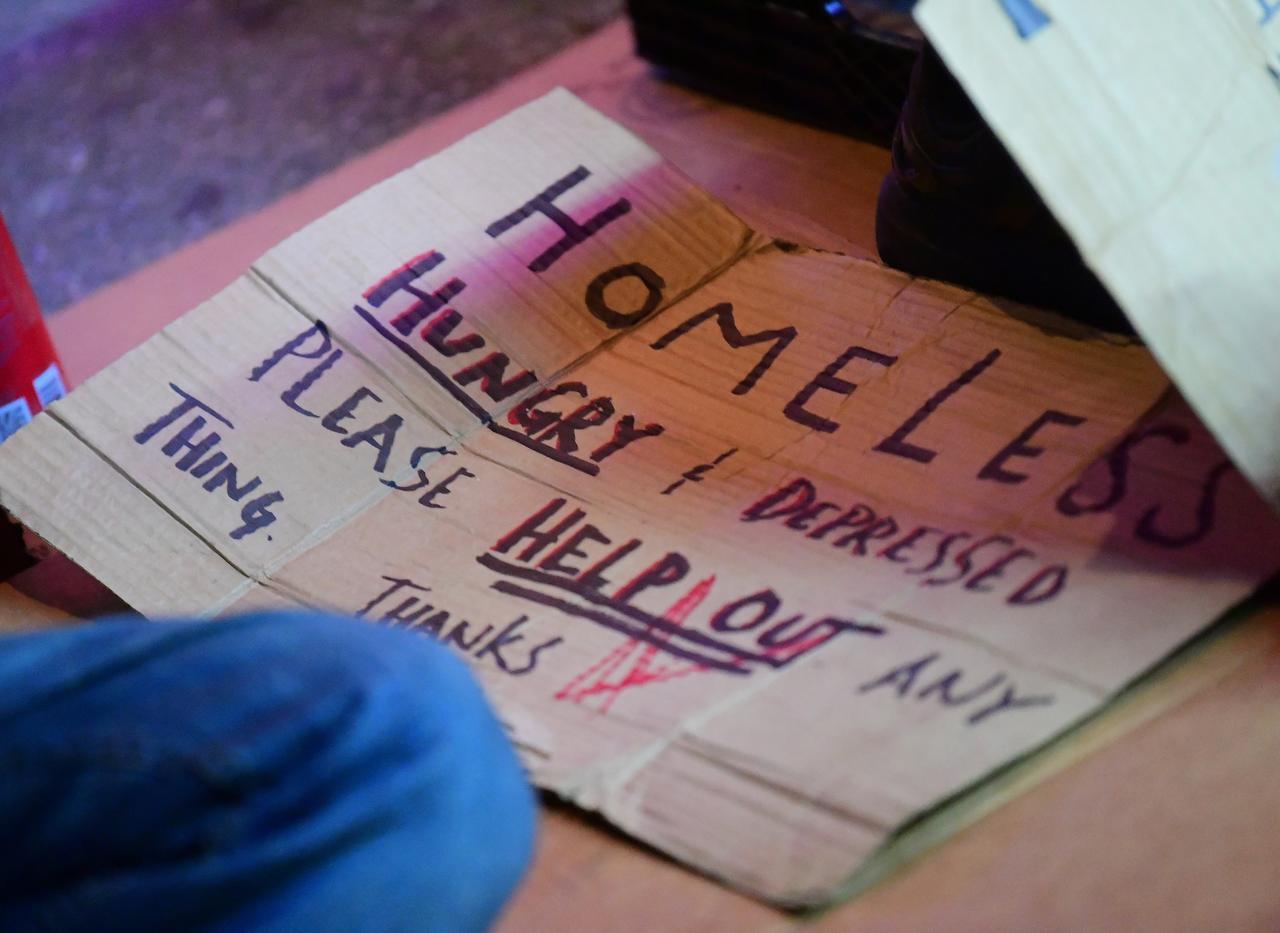 HOMELESS
HUNGRY & DEPRESSED
PLEASE HELP OUT ANY
THING.
THANKS